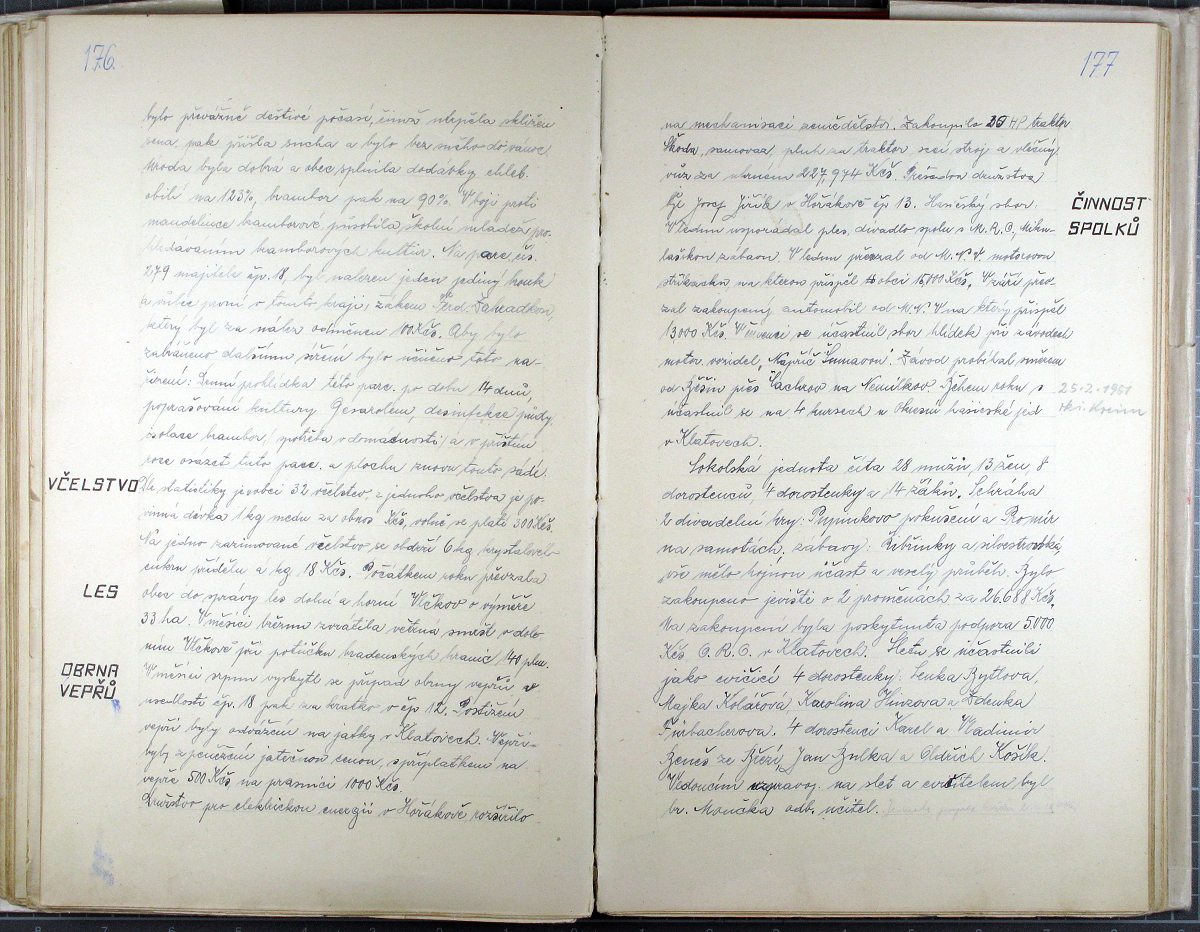 176.
bylo převážně deštivé počasí, čímž utrpěla sklizeň
sena, pak přišla sucha a bylo bez sněho do vánoc
Úroda byla dobrá a obec splnila dodávky chleb.
obilí na 123%, brambor pak na 90%. V boji proti
mandelince bramborové, přispěla, školní mládež pro-
hledáváním bramborových kultur. Na parc. čís.
279 majitele čp. 18, byl nalezen jeden jediný brouk
a vůbec první v tomto kraji, žákem Ferd. Zahradkou,
který byl za nález odměněn 100 Kčs. Aby bylo
zabráněno dalšímu šíření bylo učiněno toto na-
řízení: Denní prohlídka této parc. po dobu 14 dnů,
poprašování kultury Gesarolem, disinfekce půdy,
isolace brambor, /potřeba v domácnosti/ a v příštím
roce osázet tuto parc. a plochu znovu touto sadě.
VČELSTVO
Dle statistiky je v obci 32 včelstev, z jednoho včelstva je po-
vinná dávka 1 kg medu za obnos Kčs, volně se platí 300 Kčs.
Na jedno zazimované včelstvo se obdrží 6 kg krystalového
cukru přídělu a kg. 18 Kčs. Počátkem roku převzala
LES
obec do správy les dolní a horní Vlčkov o výměře
33 ha. V měsíci březnu zvrátila větrná smršť v dolo-
ním Vlčkově při potůčku hradenských hranic 140 plm.
OBRNA
VEPŘŮ
V měsíci srpnu vyskytl se případ obrny vepřů v
usedlosti čp. 18 pak za krátko v čp 12. Postižení
vepři byly odváženi na jatky v Klatovech. Vepři
byly zpeněženi jatečnou cenou, s příplatkem na
vepře 500 Kčs, na prasnici 1000 Kčs.
Družstvo pro elektrickou energii v Hořákově rozšířilo
177
na mechanisaci zemědělství. Zakoupilo 28 HP traktor
Škoda, samovaz, pluh za traktor, secí stroj a vlečný
vůz za obnosem 227,974 Kčs. Předsedou družstva
ČINNOST
SPOLKŮ
byl Josef Jiřík v Hořákově čp 13. Hasičský sbor:
V lednu uspořádal ples, divadlo spolu s M. R. O., Miku-
lášskou zábavu. V lednu převzal od M. N. V. motorovou
stříkačku na kterou přispěl s obcí 15,000 Kčs, V září pře-
zal zakoupený automobil od M. N. V. na který přispěl
13000 Kčs. V červenci se účastnil sbor hlídek při závodech
motor. vozidel, "Napříč Šumavou". Závod probíhal směrem
od Běšin přes Čachrov na Nemilkov. Během roku s
25.2.1951
účastnil se na 4 kursech u Okresní hasičské jed.
v Klatovech.
Sokolská jednota čítá 28 mužů, 13 žen, 8
dorostenců, 4 dorostenky a 14 žáků. Sehrála
2 divadelní hry: Pepinkovo pokušení a Romir
na samotách, zábavy: Šibřinky a silvestrovská,
vše mělo hojnou účast a veselý průběh. Bylo
zakoupeno jeviště o 2 proměnách za 26.688 Kčs.
Na zakoupení byla poskytnuta podpora 5.000
Kčs O. R. O. v Klatovech. Sletu se účastnili
jako cvičící 4 dorostenky: Lenka Bytlova,
Majka Kolářová, Karolina Hinzova a Zdenka
Fürbacherova. 4 dorostenci Karel a Vladimír
Beneš ze Březí, Jan Bulka a Oldřich Košťál.
Vedoucím výpravy na slet a cvičitelem byl
br. Moučka odb. učitel.